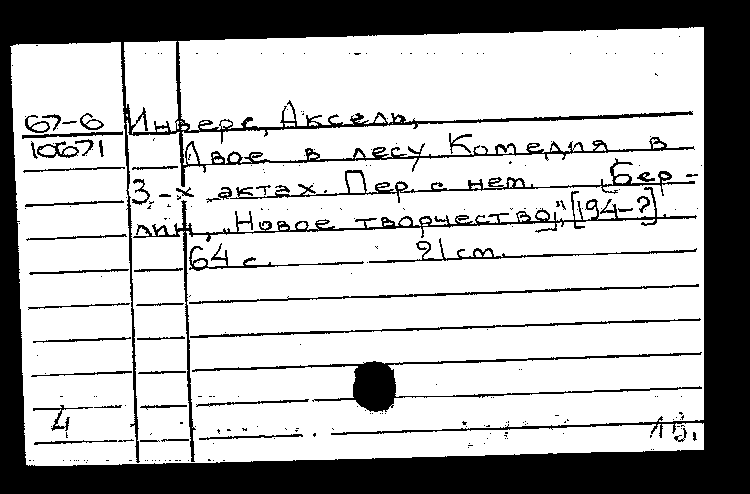 67-6 Инверс, Аксель,
10671 Двое в лесу. Комедия в
3-х актах. Пер. с нем. [Бер-
лин, „Новое творчество],“ [194-?].
64 с. 21 см.
4 1Б.